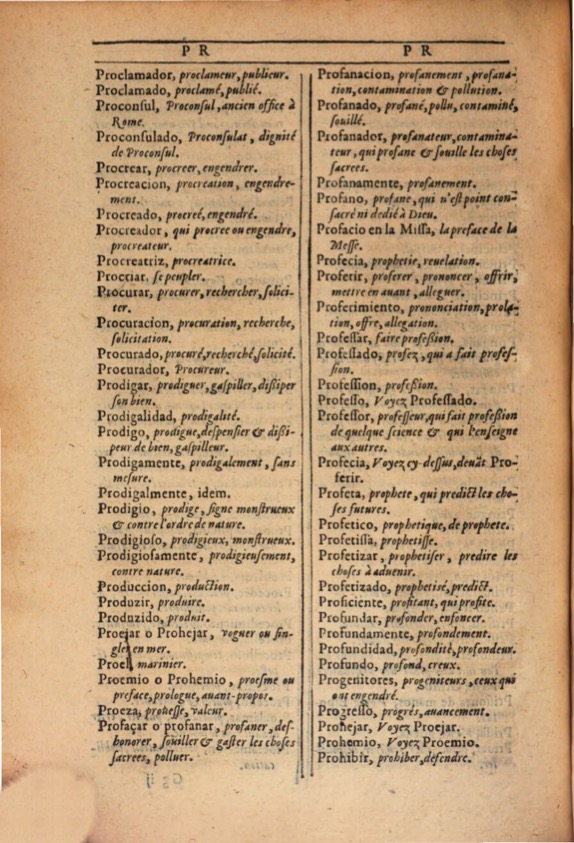 P R
Proclamador, proclameur, publieur.
Proclamado, proclamé, publié.
Proconſul, Proconſul, ancien office à
Rome.
Proconſulado, Proconſulat, dignité
de Proconſul.
Procrear, procreer, engendrer.
Procreacion, procreation, engendre-
ment.
Procreado, procreé, engendré.
Procreador, qui procree ou engendre,
procreateur.
Procreatriz, procreatrice.
Procriar, ſe peupler.
Procurar, procurer, rechercher, ſolici-
ter.
Procuracion, procuration, recherche,
ſolicitation.
Procurado, procuré, recherché, ſolicité.
Procurador, Procureur.
Prodigar, prodiguer, gaſpiller, diſsiper
ſon bien.
Prodigalidad, prodigalité.
Prodigo, prodigue, deſpenſier & diſsi-
peur de bien, gaſpilleur.
Prodigamente, prodigalement, ſans
meſure.
Prodigalmente, idem.
Prodigio, prodige, ſigne monſtrueux
& contre l'ordre de nature.
Prodigioſo, prodigieux, monſtrueux.
Prodigioſamente, prodigieuſement,
contre nature.
Produccion, production.
Produzir, produire.
Produzido, produit.
Proejar o Prohejar, voguer ou ſin-
gler en mer.
Proel, marinier.
Proemio o Prohemio, proeſme ou
preface, prologue, auant-propos.
Proeza, proüeſſe, valeur.
Profaçar o profanar, profaner, deſ-
honorer, ſoüiller & gaſter les choſes
ſacrees, polluer.
P R
Profanacion, profanement, profana-
tion, contamination & pollution.
Profanado, profané, pollu, contaminé,
ſouillé.
Profanador, profanateur, contamina-
teur, qui profane & ſouille les choſes
ſacrees.
Profanamente, profanement.
Profano, profane, qui n'eſt point con-
ſacré ni dedié à Dieu.
Profacio en la Miſſa, la preface de la
Meſſe.
Profecia, prophetie, reuelation.
Proferir, proferer, prononcer, offrir,
mettre en auant, alleguer.
Proferimiento, prononciation, prola-
tion, offre, allegation.
Profeſſar, faire profeſsion.
Profeſſado, profez, qui a fait profeſ-
ſion.
Profeſſion, profeſsion.
Profeſſo, Voyez Profeſſado.
Profeſſor, profeſſeur, qui fait profeſsion
de quelque ſcience & qui l'enſeigne
aux autres.
Profecia, Voyez cy-deſſus, deuãt Pro-
ferir.
Profeta, prophete, qui predict les cho-
ſes futures.
Profetico, prophetique, de prophete.
Profetiſſa, prophetiſſe.
Profetizar, prophetiſer, predire les
choſes à aduenir.
Profetizado, prophetisé, predict.
Proficiente, profitant, qui profite.
Profundar, profonder, enfoncer.
Profundamente, profondement.
Profundidad, profondité, profondeur.
Profundo, profond, creux.
Progenitores, progeniteurs, ceux qui
ont engendré.
Progreſſo, progrés, auancement.
Prohejar, Voyez Proejar.
Prohemio, Voyez Proemio.
Prohibir, prohiber, defendre.